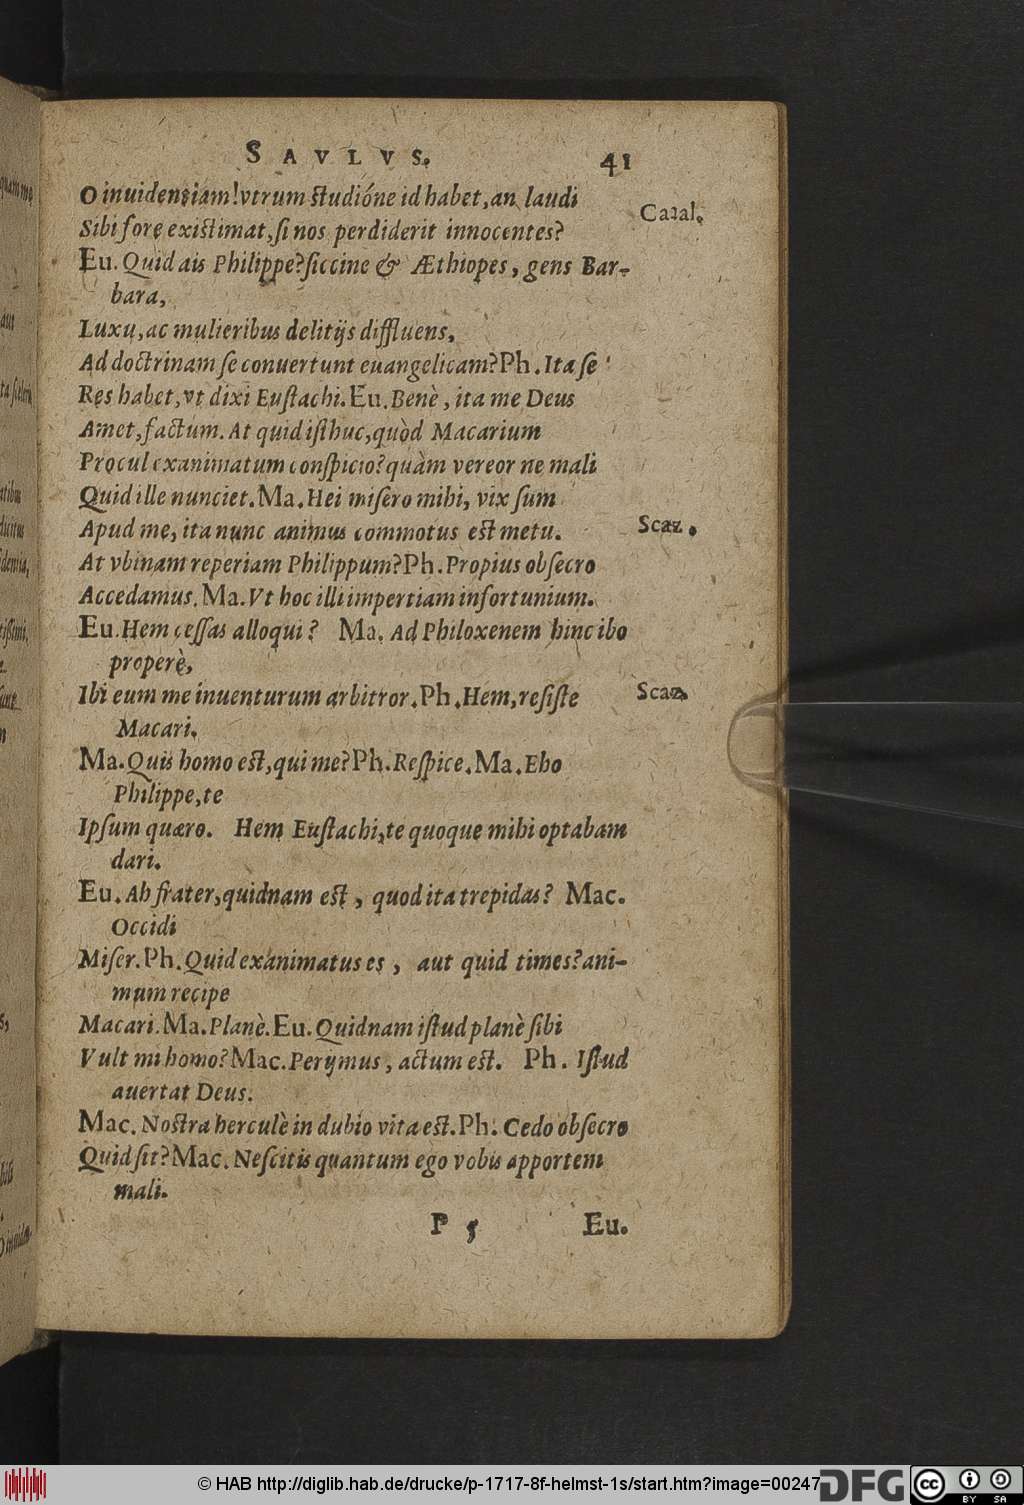 SAVLVS. 41
O inuidentiam! vtrum studióne id habet, an laudi
Catal.
Sibi fore existimat, si nos perdiderit innocentes?
Eu. Quid ais Philippe? siccine & Æthiopes, gens Bar-
bara,
Luxu, ac mulieribus delitijs diffluens,
Ad doctrinam se conuertunt euangelicam? Ph. Ita se
Res habet, vt dixi Eustachi. Eu. Benè, ita me Deus
Amet, factum. At quid isthuc, quòd Macarium
Procul exanimatum conspicio? quàm vereor ne mali
Quid ille nunciet. Ma. Hei misero mihi, vix sum
Apud me, ita nunc animus commotus est metu.
Scaz.
At vbinam reperiam Philippum? Ph. Propius obsecro
Accedamus. Ma. Vt hoc illi impertiam infortunium.
Eu. Hem cessas alloqui? Ma. Ad Philoxenem hinc ibo
properè,
Ibi eum me inuenturum arbitror. Ph. Hem, resiste
Scaz.
Macari.
Ma. Quis homo est, qui me? Ph. Respice. Ma. Eho
Philippe, te
Ipsum quæro. Hem Eustachi, te quoque mihi optabam
dari.
Eu. Ah frater, quidnam est, quod ita trepidas? Mac.
Occidi
Miser. Ph. Quid exanimatus es, aut quid times? ani-
mum recipe
Macari. Ma. Planè. Eu. Quidnam istud planè sibi
Vult mi homo? Mac. Perijmus, actum est. Ph. Istud
auertat Deus.
Mac. Nostra herculè in dubio vita est. Ph. Cedo obsecro
Quid sit? Mac. Nescitis quantum ego vobis apportem
mali.
P 5 Eu.
© HAB http://diglib.hab.de/drucke/p-1717-8f-helmst-1s/start.htm?image=00247
DFG
cc BY SA